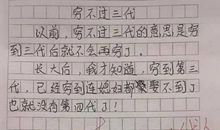 穷不过三代
以前,穷不过三代的意思是穷
到三代台就不会再穷了。
长大后,我才知道,穷到第三
代,已经穷到连媳妇都娶不到了
也就没有第四代了!